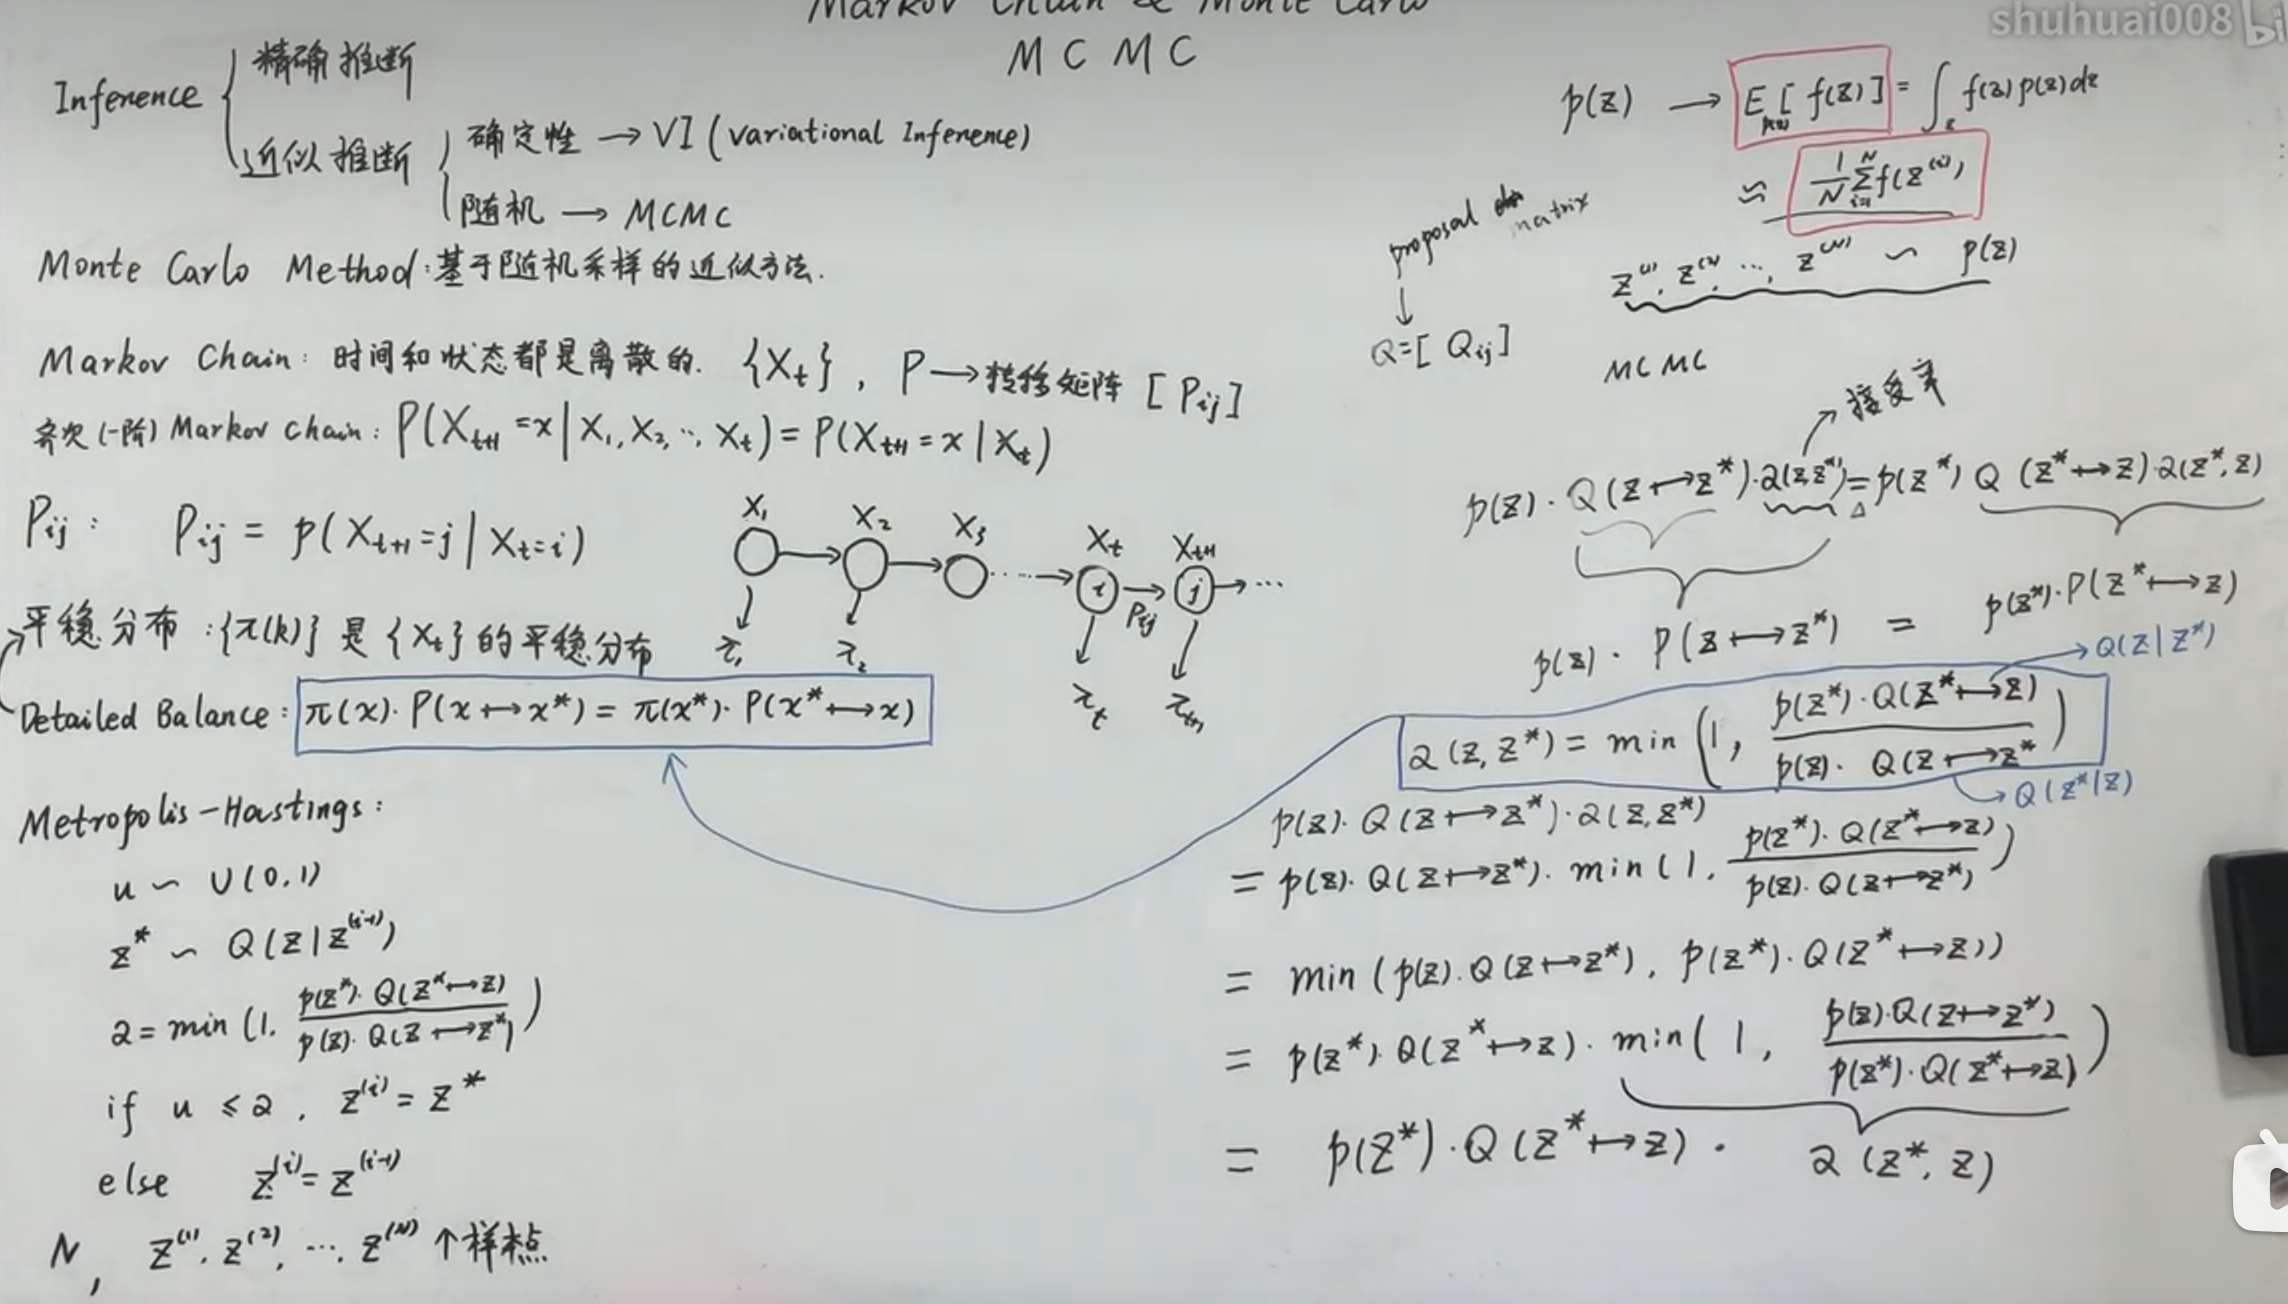 Markov Chain & Monte Carlo
MCMC
shuhuai008
Inference
精确推断
近似推断
确定性 → VI (variational Inference)
随机 → MCMC
Monte Carlo Method: 基于随机采样的近似方法.
Markov Chain: 时间和状态都是离散的. {X_t}, P → 转移矩阵 [P_ij]
齐次(一阶) Markov Chain: P(X_{t+1}=x | X_1, X_2, ..., X_t) = P(X_{t+1}=x | X_t)
P_ij: P_ij = p(X_{t+1}=j | X_t=i)
X_1 X_2 X_3 X_t X_{t+1}
i j ...
P_ij
π_1 π_2 π_t π_{t+1}
平稳分布: {π(k)} 是 {X_t} 的平稳分布
Detailed Balance: π(x)·P(x↦x*) = π(x*)·P(x*↦x)
Metropolis-Hastings:
u ~ U(0,1)
z* ~ Q(z|z^(i-1))
α = min(1, p(z*)·Q(z*↦z) / p(z)·Q(z↦z*))
if u ≤ α, z^(i) = z*
else z^(i) = z^(i-1)
N, z^(1), z^(2), ..., z^(N) 个样本点
p(z) → E_{p(z)}[f(z)] = ∫_z f(z)p(z)dz
≈ 1/N Σ_{i=1}^N f(z^(i))
z^(1), z^(2), ..., z^(N) ~ p(z)
proposal matrix
↓
Q=[Q_ij]
MCMC
接受率
p(z)·Q(z↦z*)·α(z,z*) = p(z*) Q(z*↦z)·α(z*,z)
Δ
p(z)·P(z↦z*) = p(z*)·P(z*↦z)
Q(z|z*)
α(z,z*) = min(1, p(z*)·Q(z*↦z) / p(z)·Q(z↦z*
Q(z*|z)
p(z)·Q(z↦z*)·α(z,z*)
= p(z)·Q(z↦z*)·min(1, p(z*)·Q(z*↦z) / p(z)·Q(z↦z*))
= min(p(z)·Q(z↦z*), p(z*)·Q(z*↦z))
= p(z*)·Q(z*↦z)·min(1, p(z)·Q(z↦z*) / p(z*)·Q(z*↦z))
= p(z*)·Q(z*↦z)·α(z*,z)